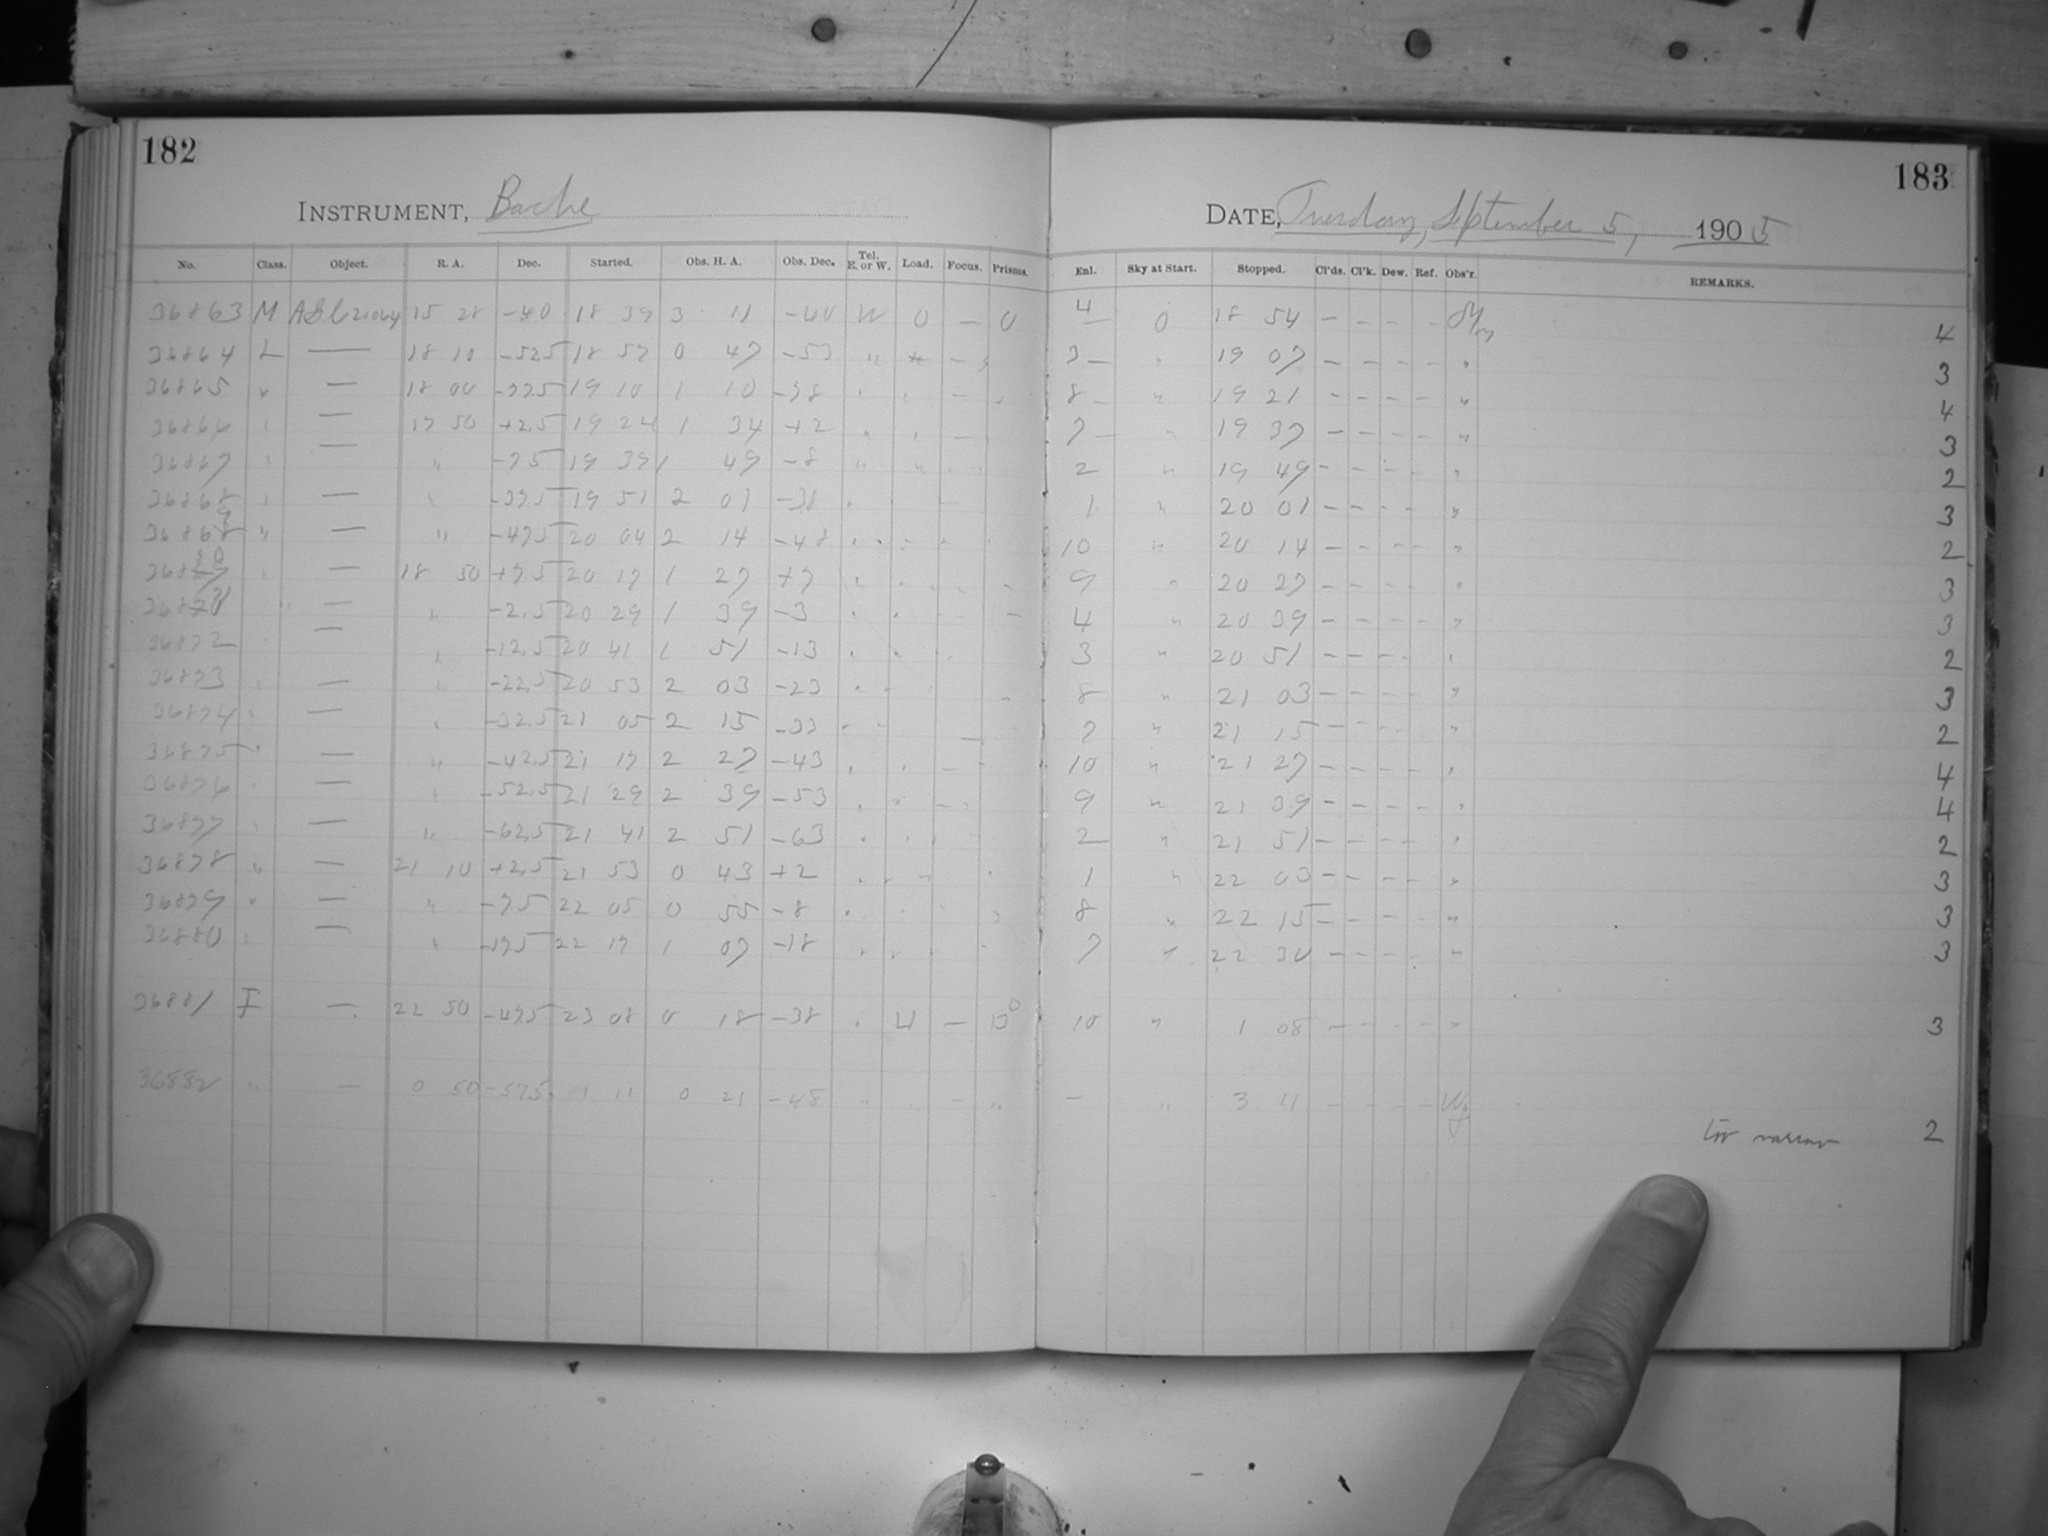 182
183
INSTRUMENT, Bache
DATE, Tuesday, September 5, 1905
No. Class. Object. R. A. Dec. Started. Obs. H. A. Obs. Dec. Tel. E. or W. Load. Focus. Prisms. Enl. Sky at Start. Stopped. Cl'ds. Cl'k. Dew. Ref. Obs'r. REMARKS.
36863 M 15 28 -40 18 39 3 11 -40 W 0 — 0 4 — 0 18 54 — — — - 4
36864 L — 18 10 -52.5 18 57 0 47 -53 " — 3 — " 19 07 - - - - " 3
36865 " — 18 00 -37.5 19 10 1 10 -38 " " - " 8 - " 19 21 - - - - " 4
36866 " — 17 50 +2.5 19 24 1 34 +2 " " - 7 — " 19 37 - - - - " 3
36867 " — " -7.5 19 39 1 49 -8 " " - 2 " 19 49 - - - - " 2
36868 " — " -37.5 19 51 2 01 -38 " - 1 " 20 01 - - - - " 3
36869 " — " -47.5 20 04 2 14 -48 " " - " 10 " 20 14 - - - - " 2
36870 " — 18 50 +7.5 20 17 1 27 +7 " " - - 9 " 20 27 - - - - " 3
36871 " — " -2.5 20 29 1 39 -3 " " - - 4 " 20 39 - - - - " 3
36872 " — " -12.5 20 41 1 51 -13 " " - 3 " 20 51 - - - - " 2
36873 " — " -22.5 20 53 2 03 -23 " " - - 8 " 21 03 - - - - " 3
36874 " — " -32.5 21 05 2 15 -33 " " - 7 " 21 15 - - - - " 2
36875 " — " -42.5 21 17 2 27 -43 " " - - 10 " 21 27 - - - - " 4
36876 " — " -52.5 21 29 2 39 -53 " " - " 9 " 21 39 - - - - " 4
36877 " — " -62.5 21 41 2 51 -63 " " - 2 " 21 51 - - - - " 2
36878 " — 21 10 +2.5 21 53 0 43 +2 " " - " 1 " 22 03 - - - - " 3
36879 " — " -7.5 22 05 0 55 -8 " " - " 8 " 22 15 - - - - " 3
36880 " — " -17.5 22 17 1 07 -18 " " - " 7 " 22 30 - - - - " 3
36881 I — 22 50 -47.5 23 08 0 18 -38 " — 10 " 1 08 - - - - " 3
36882 " — 0 50 -57.5 1 11 0 21 -48 " " - " — " 3 11 - - - -
2